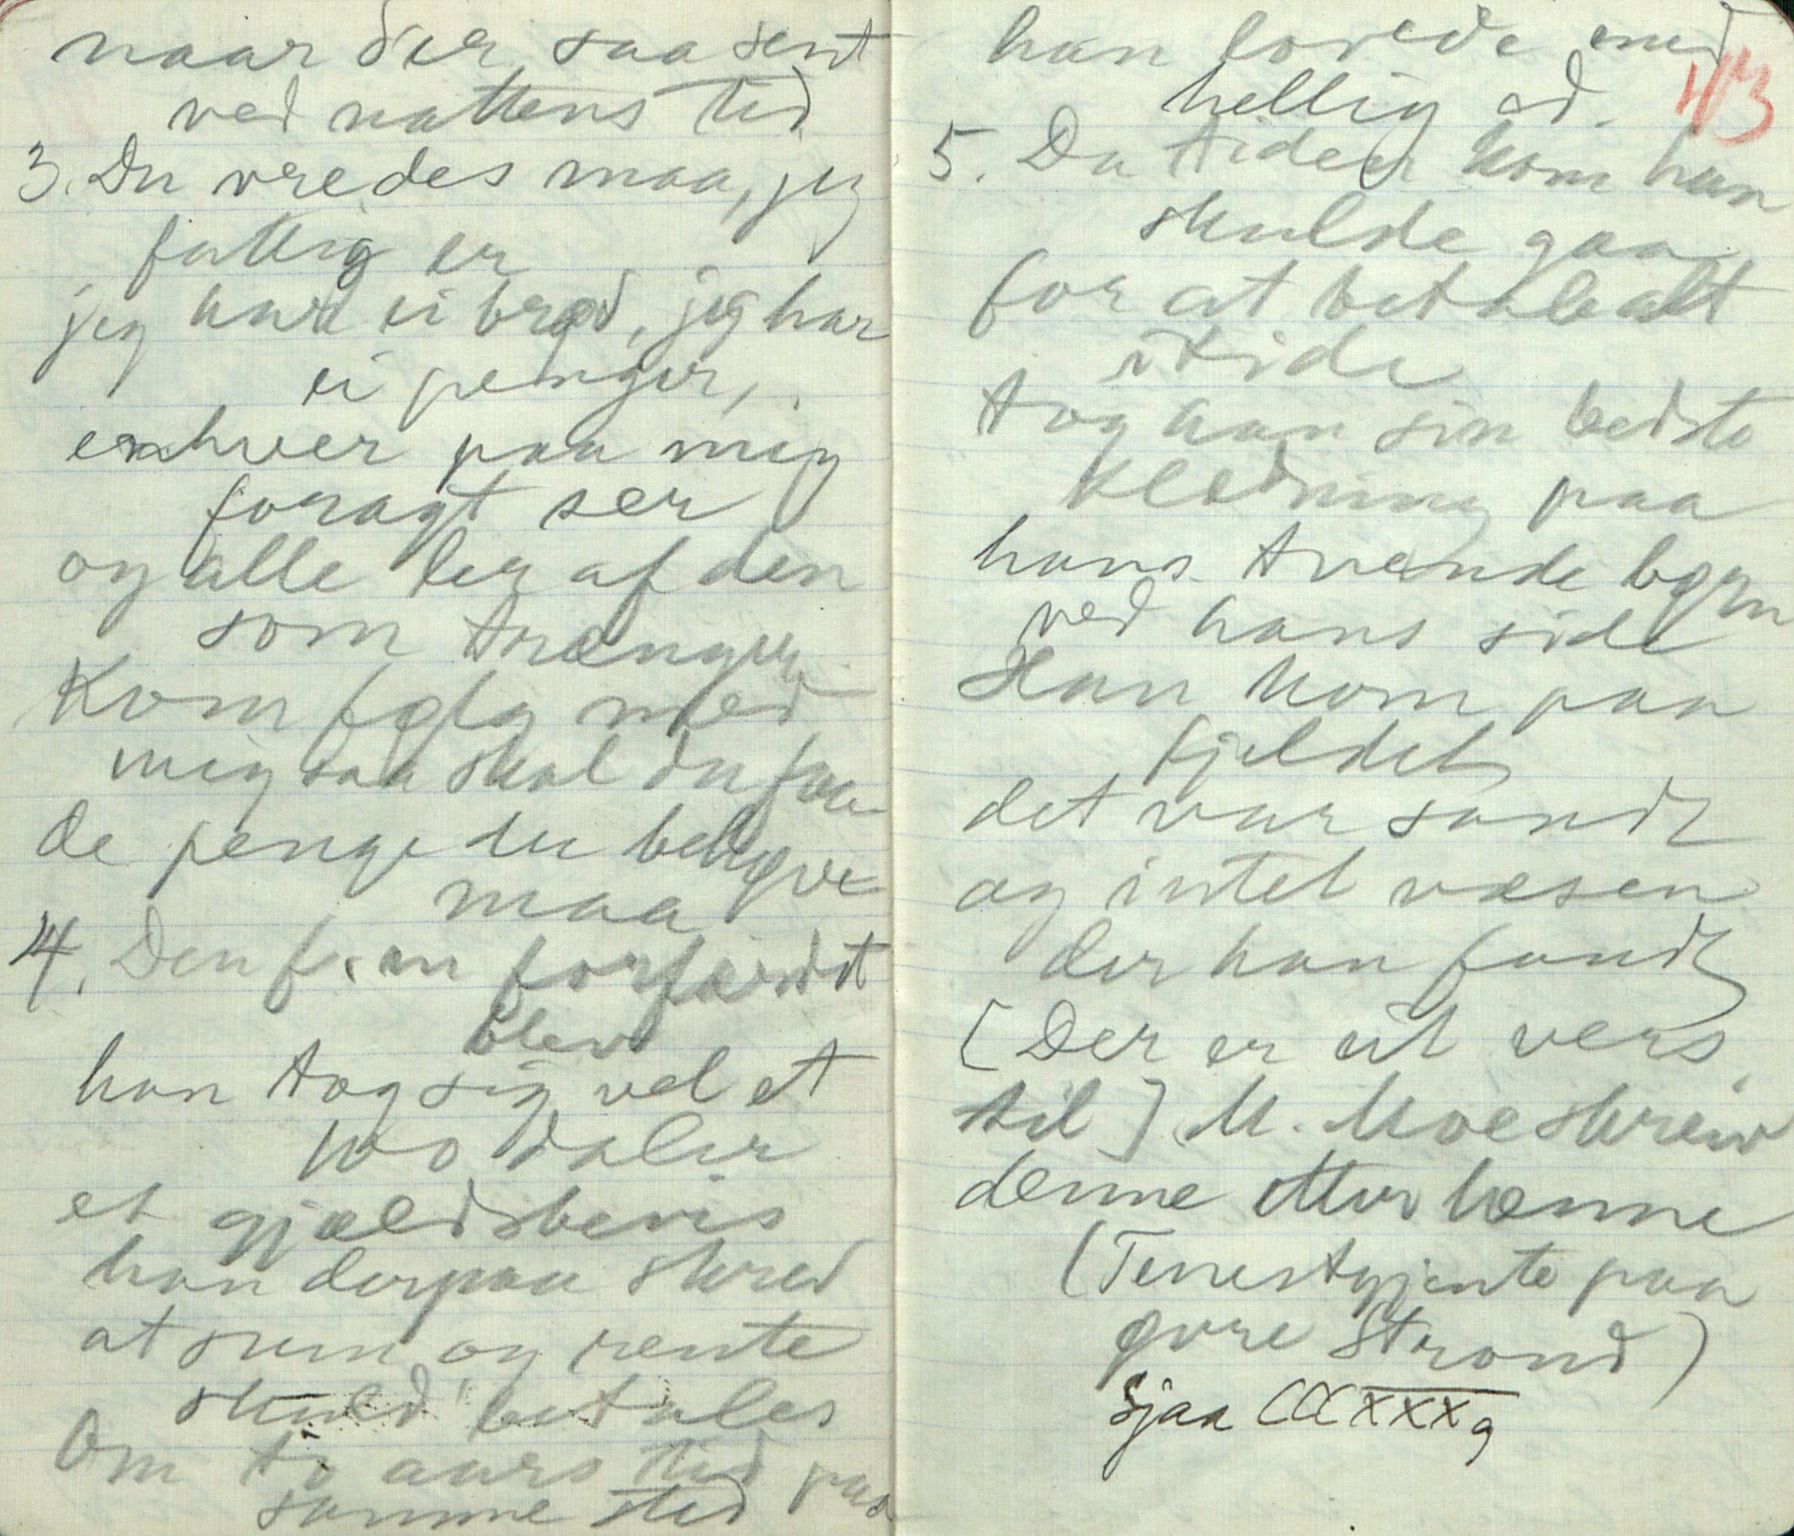 naar der saa sent
ved nattens tid
3. Du vredes maa, jeg
fattig er
jeg har ei brød, jeg har
ei penger,
enhver paa mig
foragt ser
og alle ler af den
som trænger
Kom følg med
mig saa skal du faa
de penge du behøve
maa
4. Den forfærdet
blev
han tog sig vel et
100 daler
et gjældsbevis
han derpaa skrev
at sum og rente
skuld betales
Om to aars tid paa
samme sted
han lovede med
hellig ed.
113
5. Da tiden kom han
skulde gaa
for at betale alt
itide
tog han sin bedste
klædning paa
hans tvende børn
ved hans side
Han kom paa
fjeldet
det var sandt
og intet væsen
der han fandt
[Der er eit vers
til] M. Moe skreiv
denne etter henne
(Tenestgjente paa
øvre Strond)
Sjaa CCXXXXg